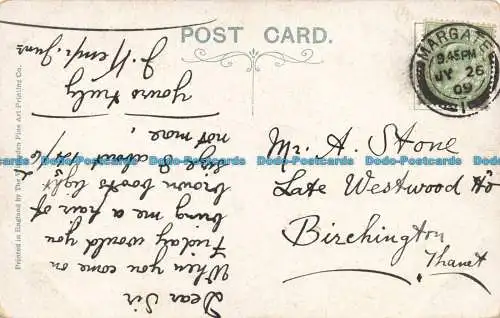 POST CARD.
MARGATE
9.45PM
JY 26
09
Mr. A. Stone
Late Westwood Ho
Birchington
Thanet
Dear Sir
When you come on
Friday would you
bring me a pair of
brown boots light
size 8 about 12/6
not more,
yours truly
J. Kemp. Junr
Printed in England by The
Fine Art Printing Co.
Dodo-Postcards Dodo-Postcards Dodo-Postcards Dodo-Postcards Dodo-Postcards